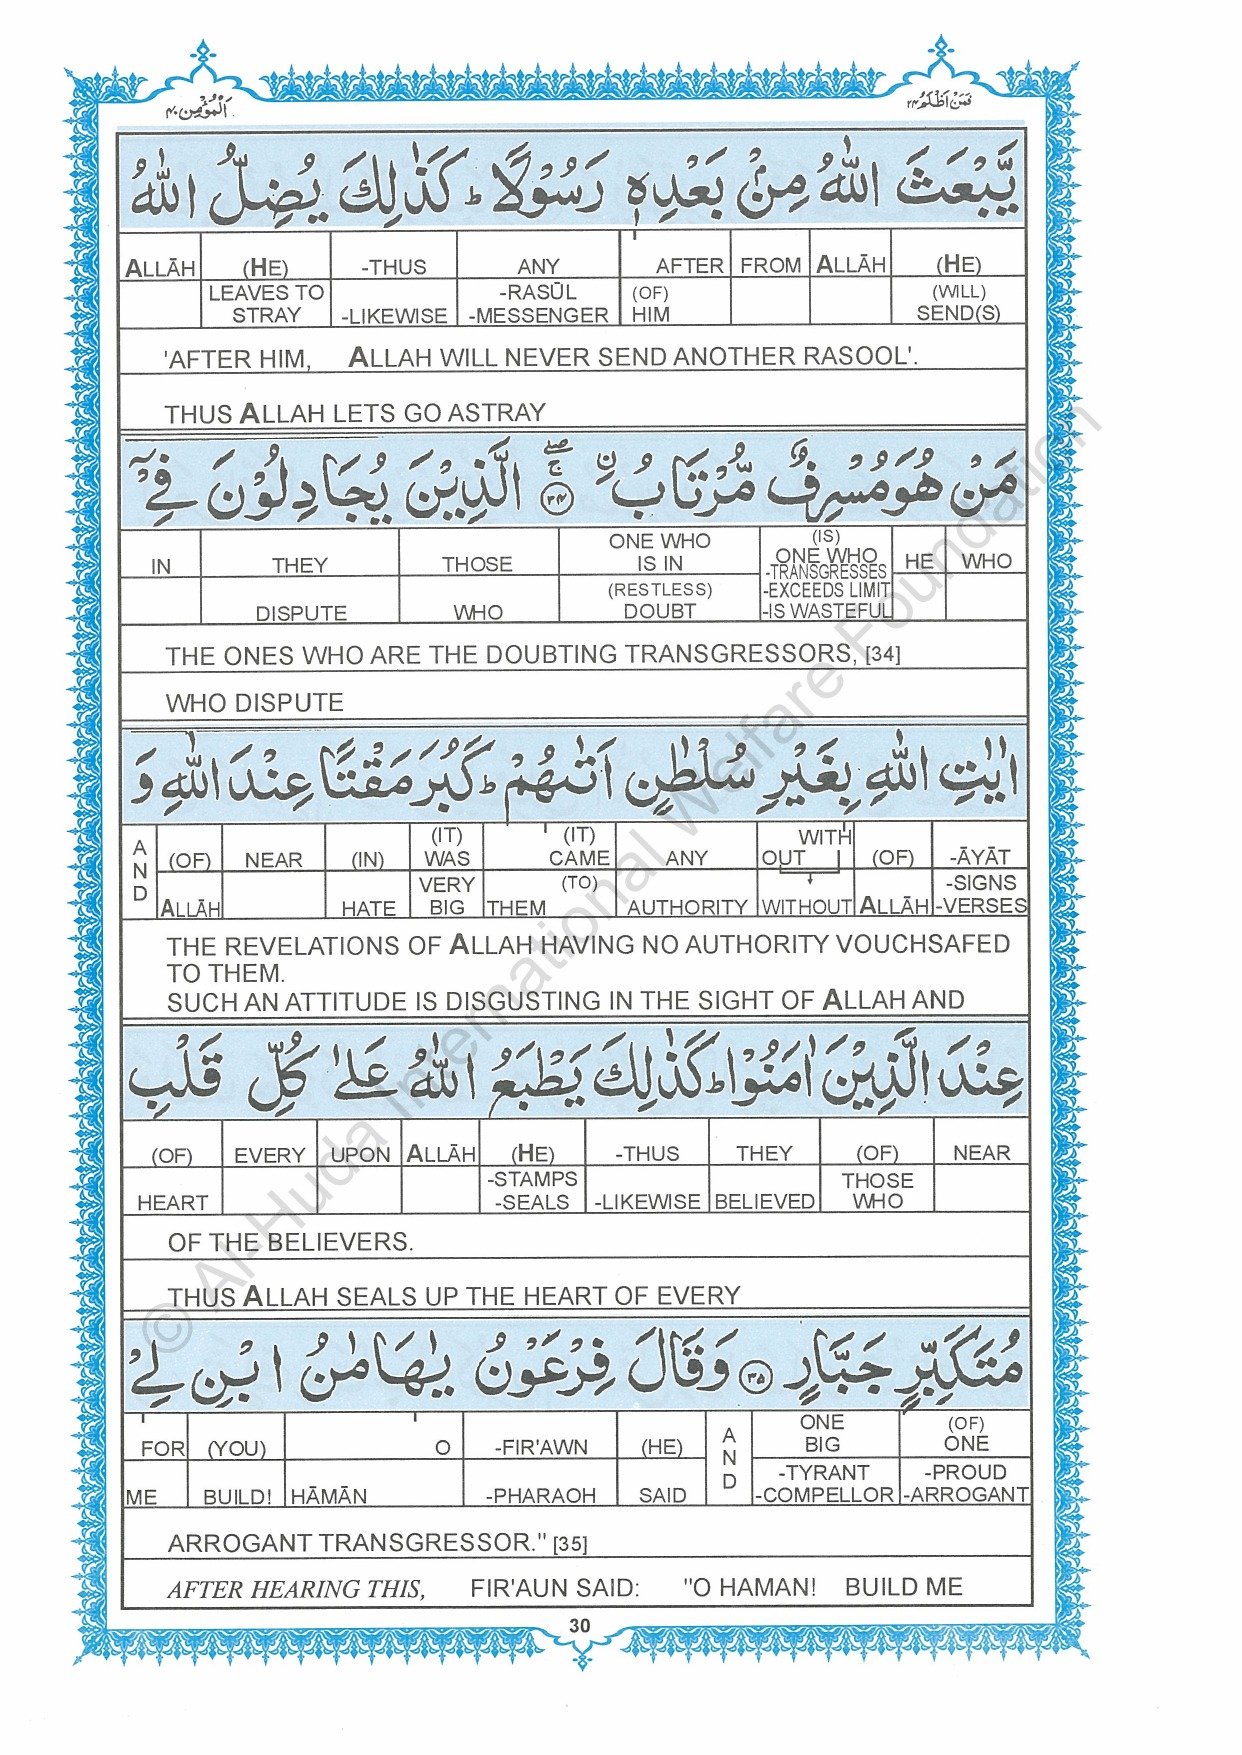 فَمَنْ اَظْلَمُ ٢٤
اَلْمُؤْمِن ٤٠
يَّبْعَثَ اللّٰهُ مِنْۢ بَعْدِهٖ رَسُوْلًا ؕ كَذٰلِكَ يُضِلُّ اللّٰهُ
ALLĀH (HE) -THUS ANY AFTER FROM ALLĀH (HE)
LEAVES TO STRAY -LIKEWISE -RASŪL -MESSENGER (OF) HIM (WILL) SEND(S)
'AFTER HIM, ALLAH WILL NEVER SEND ANOTHER RASOOL'.
THUS ALLAH LETS GO ASTRAY
مَنْ هُوَ مُسْرِفٌ مُّرْتَابُ ۨ ﴿٣٤﴾ ۚۖ الَّذِيْنَ يُجَادِلُوْنَ فِيْۤ
IN THEY THOSE ONE WHO IS IN (IS) ONE WHO HE WHO
DISPUTE WHO (RESTLESS) DOUBT -TRANSGRESSES -EXCEEDS LIMIT -IS WASTEFUL
THE ONES WHO ARE THE DOUBTING TRANSGRESSORS, [34]
WHO DISPUTE
اٰيٰتِ اللّٰهِ بِغَيْرِ سُلْطٰنٍ اَتٰىهُمْ ؕ كَبُرَ مَقْتًا عِنْدَ اللّٰهِ وَ
AND (OF) NEAR (IN) (IT) WAS (IT) CAME ANY WITH OUT (OF) -ĀYĀT
ALLĀH HATE VERY BIG (TO) THEM AUTHORITY WITHOUT ALLĀH -SIGNS -VERSES
THE REVELATIONS OF ALLAH HAVING NO AUTHORITY VOUCHSAFED
TO THEM.
SUCH AN ATTITUDE IS DISGUSTING IN THE SIGHT OF ALLAH AND
عِنْدَ الَّذِيْنَ اٰمَنُوْا ؕ كَذٰلِكَ يَطْبَعُ اللّٰهُ عَلٰى كُلِّ قَلْبِ
(OF) EVERY UPON ALLĀH (HE) -THUS THEY (OF) NEAR
HEART -STAMPS -SEALS -LIKEWISE BELIEVED THOSE WHO
OF THE BELIEVERS.
THUS ALLAH SEALS UP THE HEART OF EVERY
مُتَكَبِّرٍ جَبَّارٍ ﴿٣٥﴾ وَقَالَ فِرْعَوْنُ يٰهَامٰنُ ابْنِ لِيْ
FOR (YOU) O -FIR'AWN (HE) AND ONE BIG (OF) ONE
ME BUILD! HĀMĀN -PHARAOH SAID -TYRANT -COMPELLOR -PROUD -ARROGANT
ARROGANT TRANSGRESSOR." [35]
AFTER HEARING THIS, FIR'AUN SAID: "O HAMAN! BUILD ME
30
© Al-Huda International Welfare Foundation